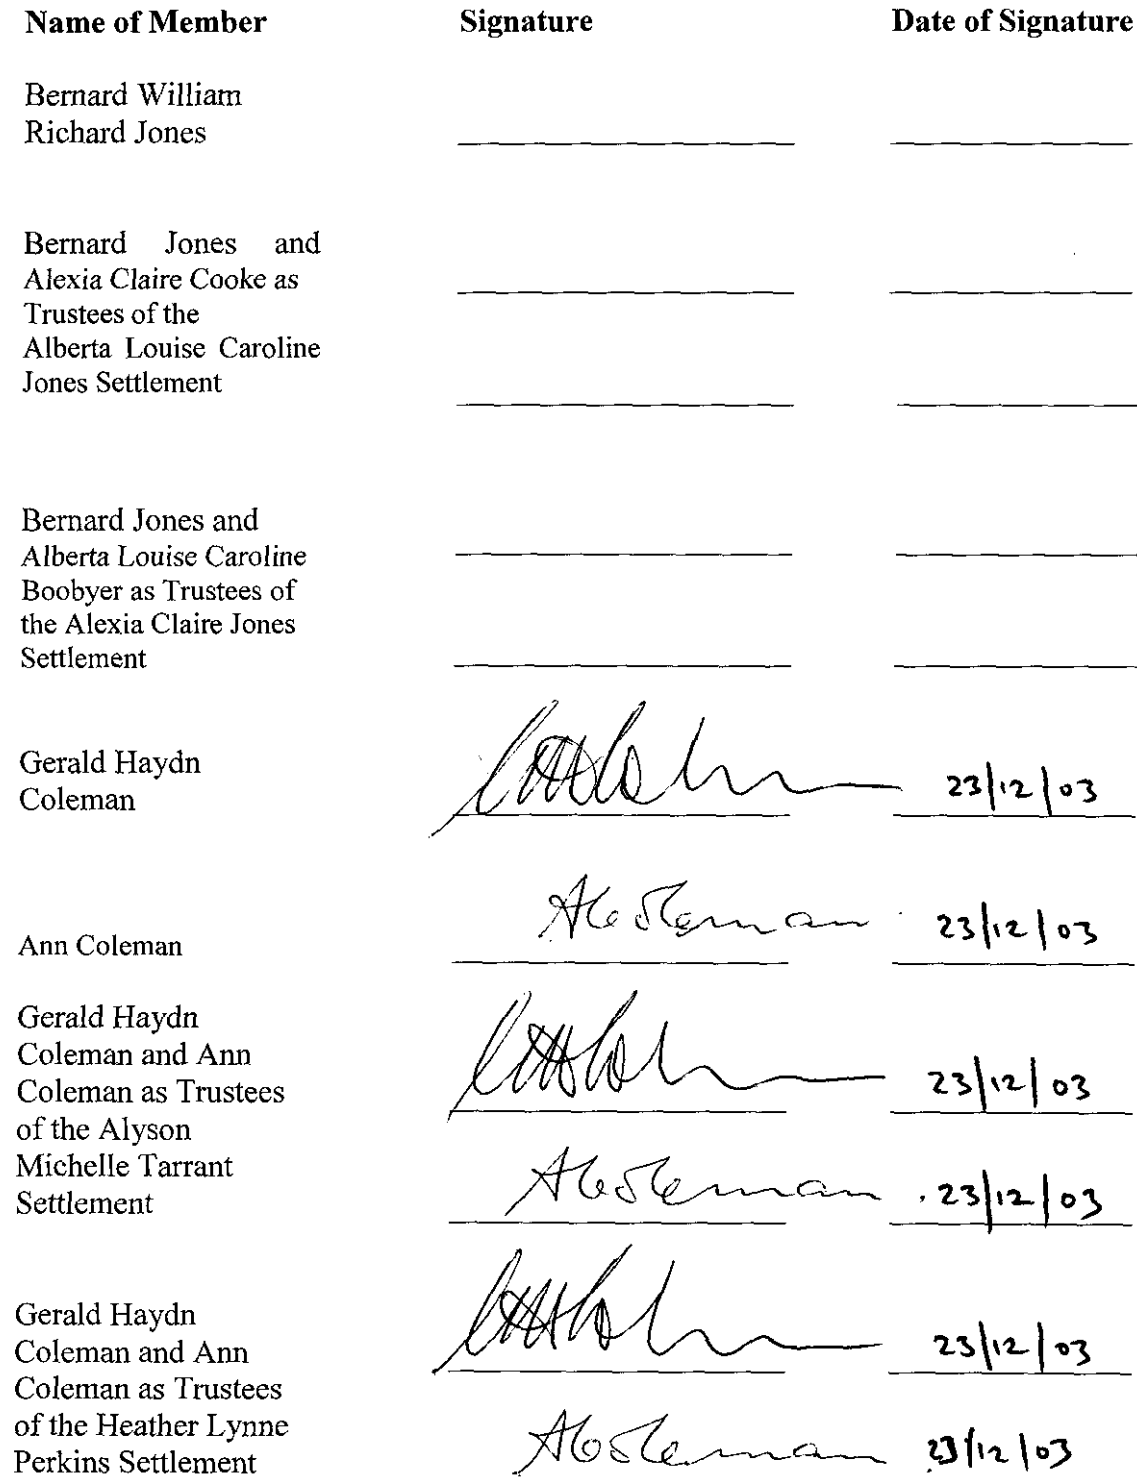 Name of Member Signature Date of Signature
Bernard William
Richard Jones
Bernard Jones and
Alexia Claire Cooke as
Trustees of the
Alberta Louise Caroline
Jones Settlement
Bernard Jones and
Alberta Louise Caroline
Boobyer as Trustees of
the Alexia Claire Jones
Settlement
Gerald Haydn
Coleman 23/12/03
Ann Coleman AColeman 23/12/03
Gerald Haydn
Coleman and Ann
Coleman as Trustees 23/12/03
of the Alyson
Michelle Tarrant
Settlement AColeman 23/12/03
Gerald Haydn
Coleman and Ann 23/12/03
Coleman as Trustees
of the Heather Lynne
Perkins Settlement AColeman 23/12/03